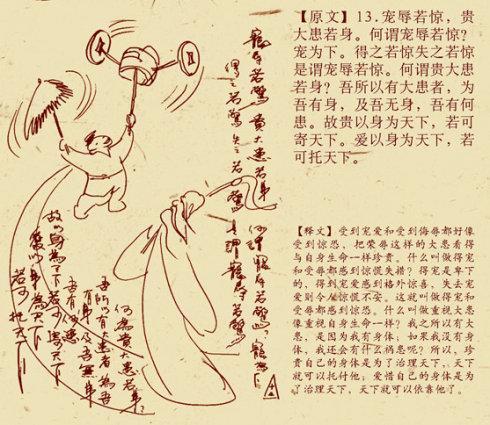 【原文】13.宠辱若惊，贵
大患若身。何谓宠辱若惊？
宠为下。得之若惊失之若惊
是谓宠辱若惊。何谓贵大患
若身？吾所以有大患者，为
吾有身，及吾无身，吾有何
患。故贵以身为天下，若可
寄天下。爱以身为天下，若
可托天下。
【释文】受到宠爱和受到侮辱都好像
受到惊恐，把荣辱这样的大患看得
与自身生命一样珍贵。什么叫做得宠
和受辱都感到惊慌失措？得宠是卑下
的，得到宠爱感到格外惊喜，失去宠
爱则令人惊慌不安。这就叫做得宠
和受辱都感到惊恐。什么叫做重视大患
像重视自身生命一样？我之所以有大
患，是因为我有身体；如果我没有身
体，我还会有什么祸患呢？所以，珍
贵自己的身体是为了治理天下，天下
就可以托付他；爱惜自己的身体是为
了治理天下，天下就可以依靠他了。
寵辱若驚 貴大患若身 何謂寵辱若驚 寵為下
得之若驚 失之若驚 是謂寵辱若驚
何為貴大患若身
吾所以有大患者為吾
有身 及吾無身
吾有何患